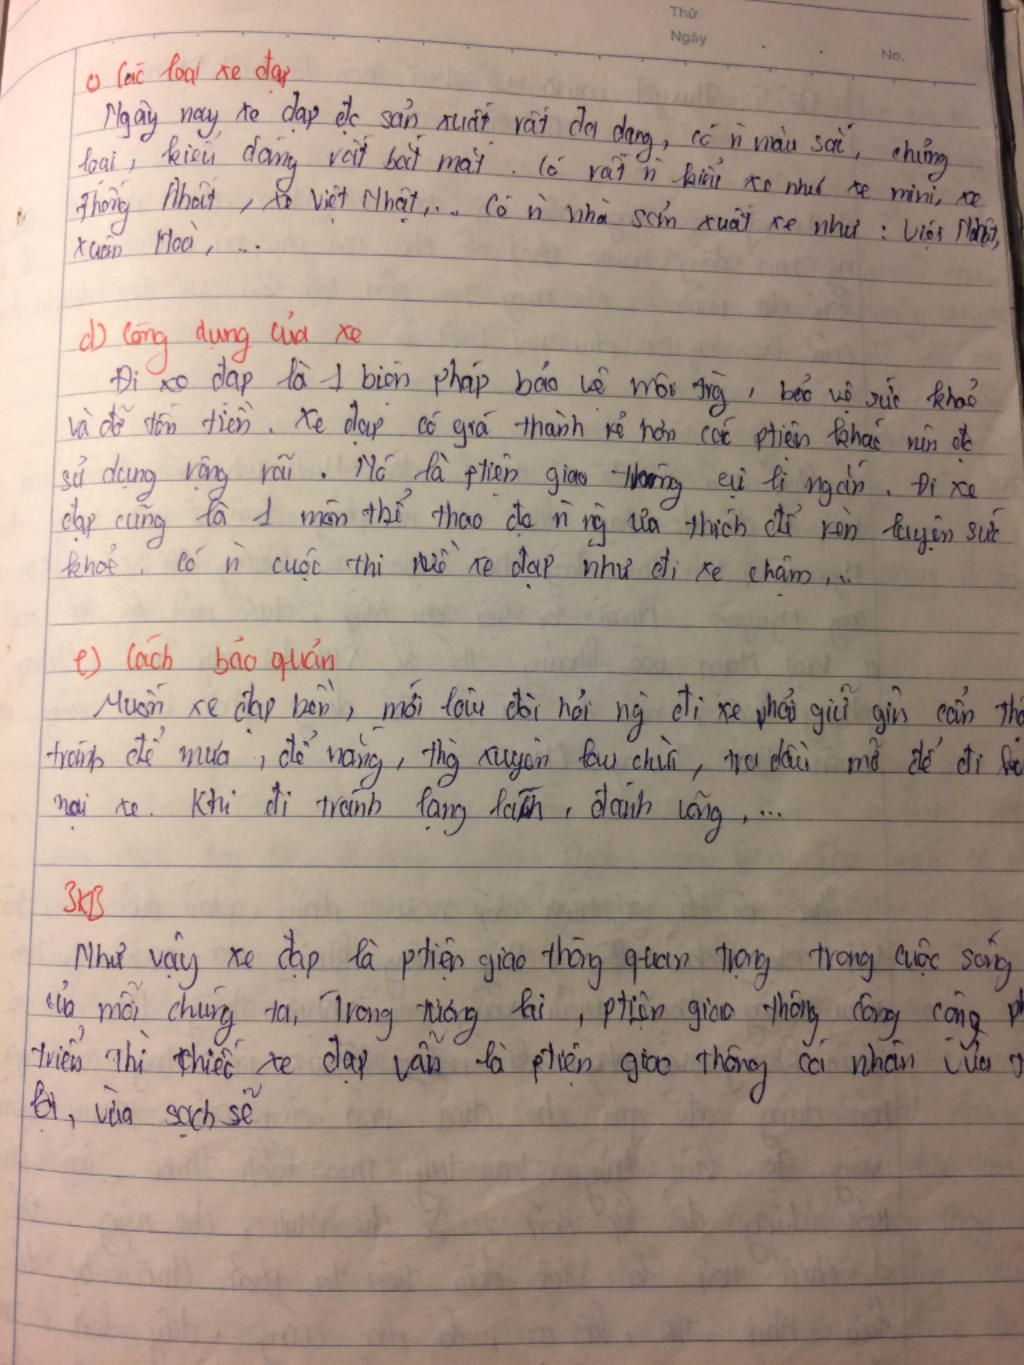 Thứ
Ngày
No.
c) Các loại xe đạp
Ngày nay xe đạp đc sản xuất rất đa dạng, có ⁿ màu sắc, chủng
loại, kiểu dáng rất bắt mắt. Có rất ⁿ kiểu xe như xe mini, xe
thống Nhất, xe Việt Nhật,... Có ⁿ nhà sản xuất xe như: Việt Nhật,
xuân Hoà, ...
d) Công dụng của xe
Đi xe đạp là 1 biện pháp bảo vệ môi trg, bảo vệ sức khoẻ
và đỡ tốn tiền. Xe đạp có giá thành rẻ hơn các ptiện khác nên đc
sử dụng rộng rãi. Nó là ptiện giao thông cự li ngắn. Đi xe
đạp cũng là 1 môn thể thao đc ⁿ ng ưa thích để rèn luyện sức
khoẻ. Có ⁿ cuộc thi xe đạp như đi xe chậm,...
e) Cách bảo quản
Muốn xe đạp bền, mới lâu đòi hỏi ng đi xe phải giữ gìn cẩn
tránh để mưa, để nắng, thg xuyên lau chùi, tra dầu mỡ để đi
hại xe. Khi đi tránh lạng lách, đánh võng,...
3KB
Như vậy xe đạp là ptiện giao thông quan trọng trong cuộc sống
của mỗi chúng ta, Trong tương lai, ptiện giao thông công cộng
triển thì chiếc xe đạp vẫn là ptiện giao thông cá nhân vừa
lợi, vừa sạch sẽ